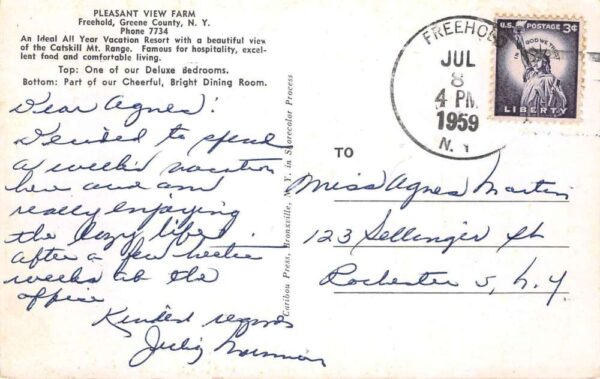 PLEASANT VIEW FARM
Freehold, Greene County, N. Y.
Phone 7734
An Ideal All Year Vacation Resort with a beautiful view
of the Catskill Mt. Range. Famous for hospitality, excel-
lent food and comfortable living.
Top: One of our Deluxe Bedrooms.
Bottom: Part of our Cheerful, Bright Dining Room.
Dear Agnes:
Decided to spend
a week's vacation
here and am
really enjoying
the lazy life.
after a few hectic
weeks at the
office
Kindest regards
Caribou Press, Bronxville, N. Y. in Sharecolor Process
FREEHOLD
JUL
8
4 PM
1959
N. Y.
U.S. POSTAGE 3¢
IN GOD WE TRUST
LIBERTY
TO
Miss Agnes Martin
123 Sellinger St
Rochester 5, N.Y.